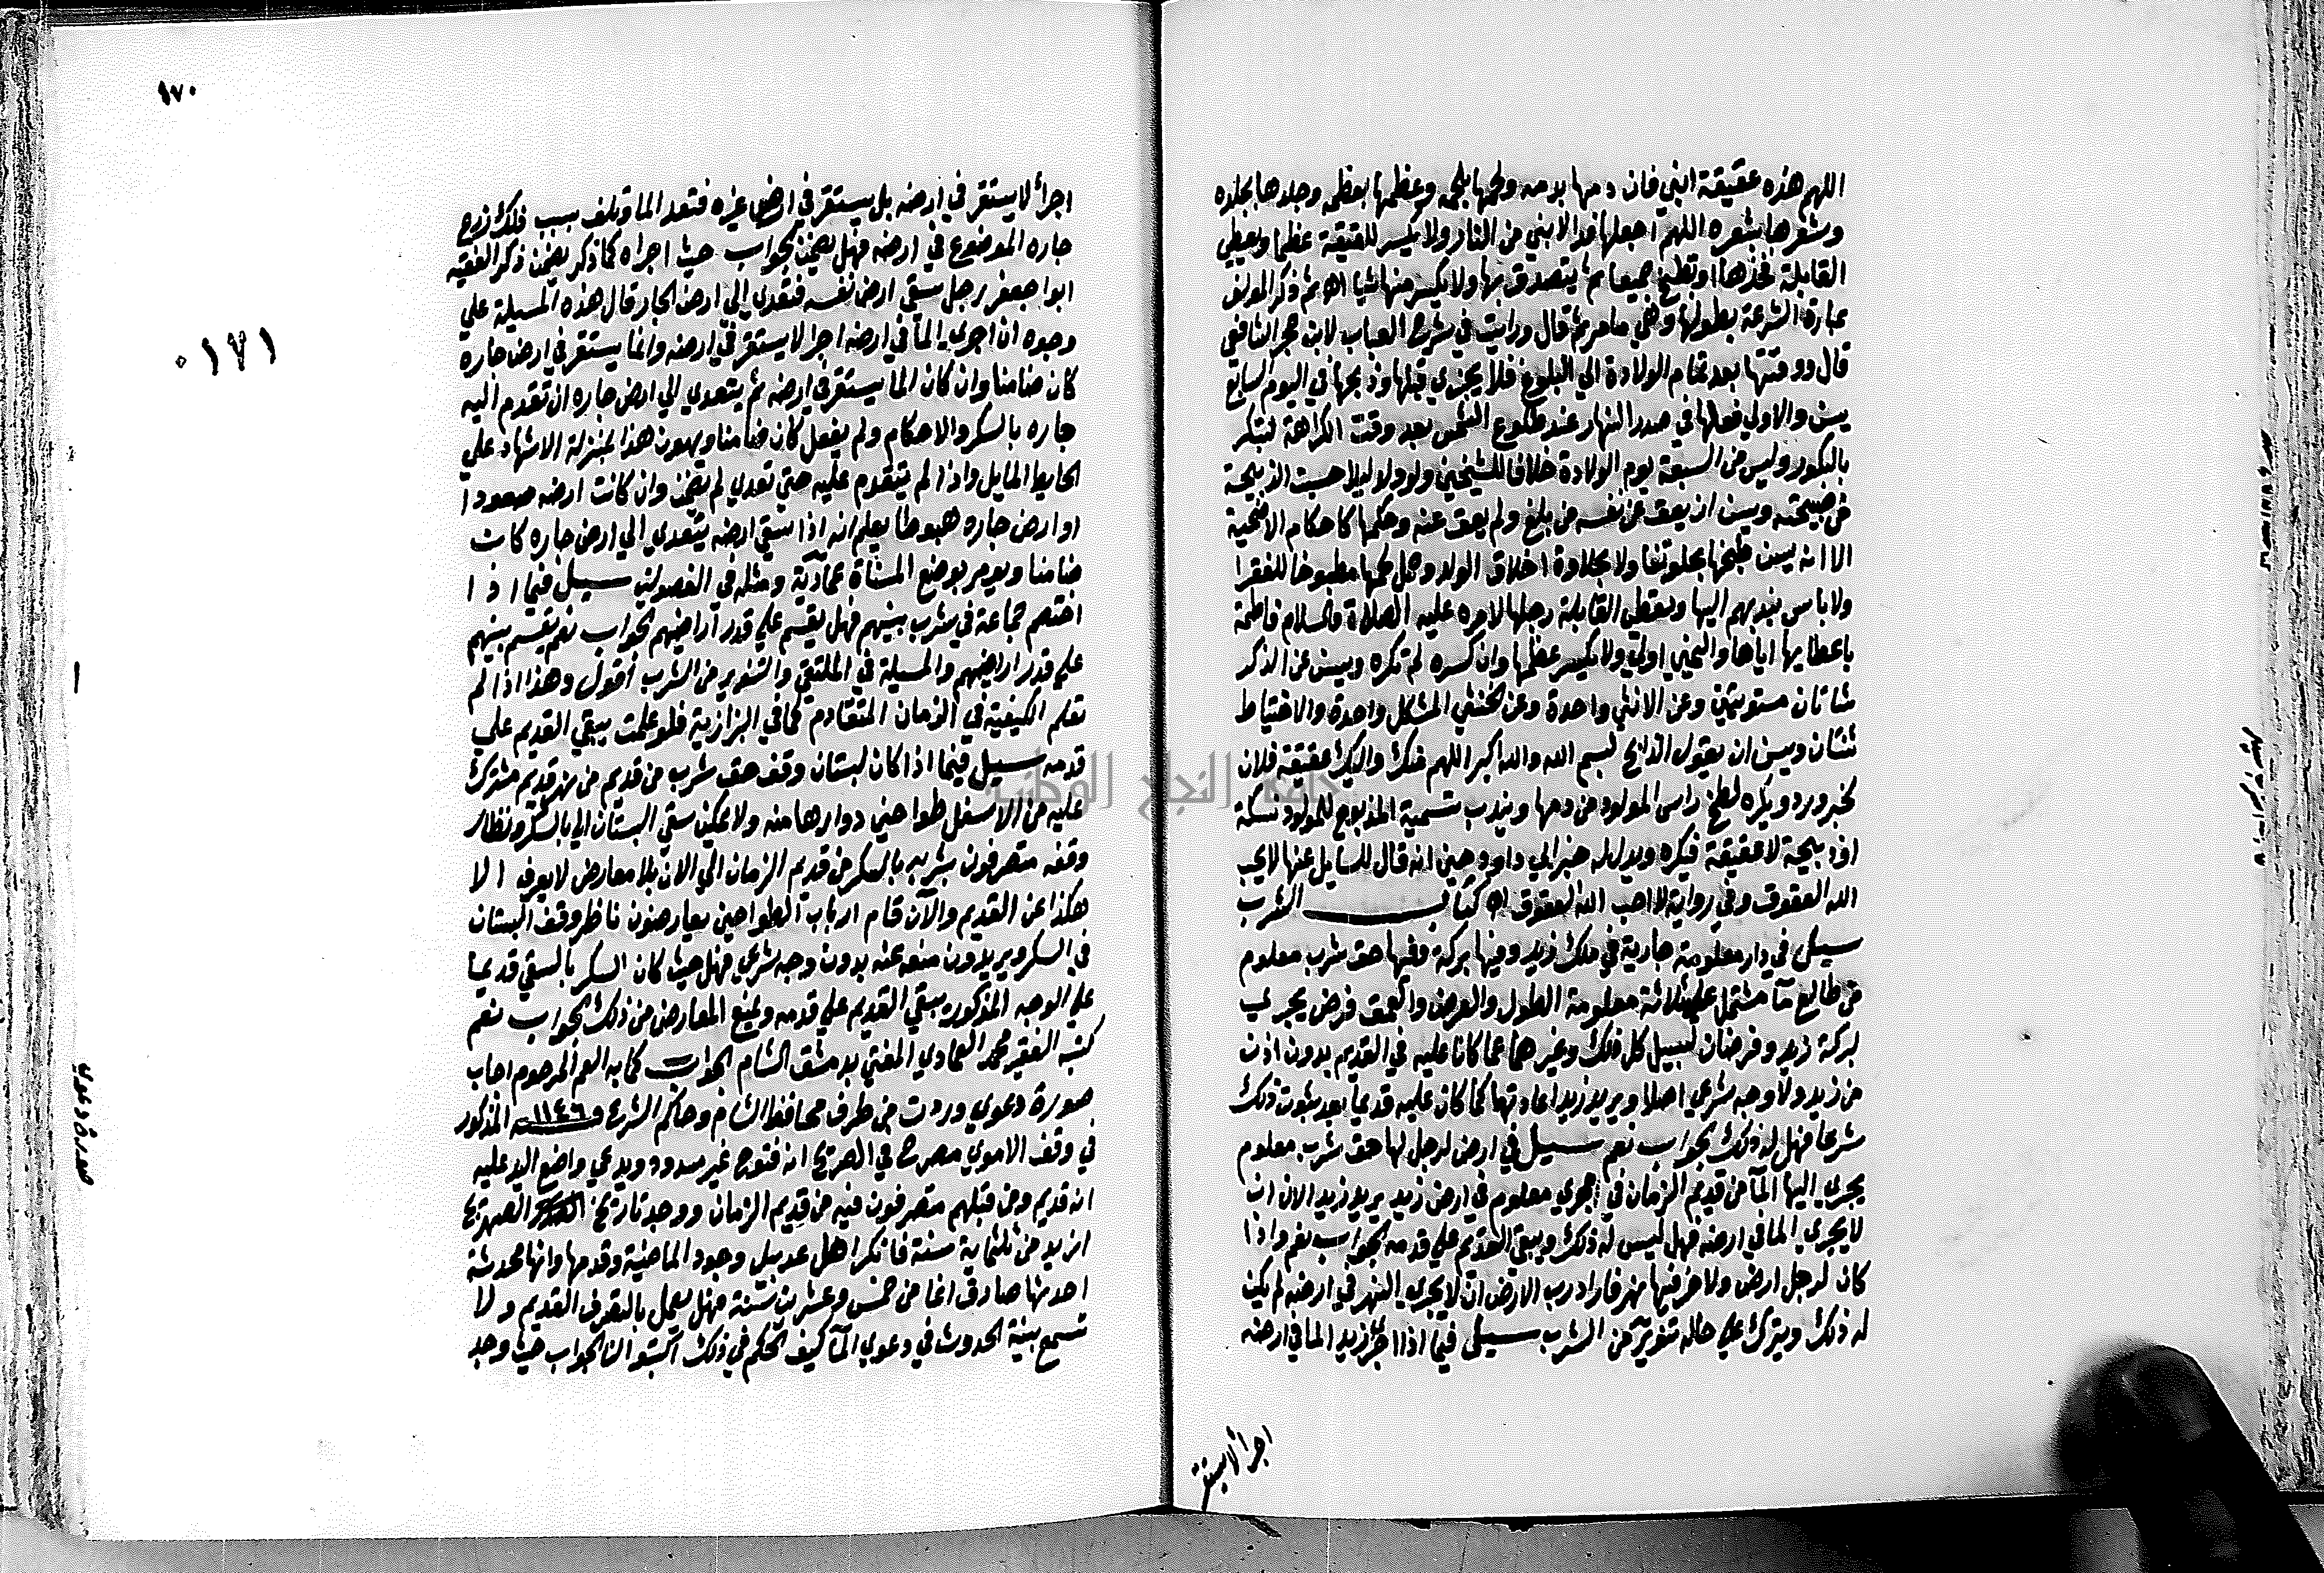 اللهم هذه عقيقة ابني فان دمها بدمه ولحمها بلحمه وعظمها بعظمه وجلدها بجلده
وشعرها بشعره اللهم اجعلها فدا لابني من النار ولا يكسر للعقيقة عظما ويعطي
القابلة فخذها او تطبخ جميعا ثم يتصدق بها ولا يكسر منها شيا اه ثم ذكر المولف
عبارة الشرعة بطولها وهي مامر ثم قال ورايت في شرح العباب لابن حجر الشافعي
قال ووقتها بعد تمام الولادة الي البلوغ فلا يجزي قبلها وذبحها في اليوم السابع
يسن والاولي فعلها في صدر النهار عند طلوع الشمس بعد وقت الكراهة لتبكر
بالبكور وليس من السبعة يوم الولادة خلافا للشيخين ولو ولد ليلا حسبت الذبيحة
من صبيحته ويسن ان يعق عن نفسه من بلغ ولم يعق عنه وحكمها كاحكام الاضحية
الا انه يسن طبخها بحلو تفا ولا بحلاوة اخلاق الولد وحمل لحمها مطبوخا للفقرا
ولا باس بندبهم اليها ويعطي القابلة رجلها لامره عليه الصلاة والسلام فاطمة
باعطايها اياها واليمني اولي ولا يكسر عظمها وان كسره لم تكره ويسن عن الذكر
شاتان مستويتين وعن الانثي واحدة وعن الخنثي المشكل واحدة والاحتياط
ثنتان ويسن ان يقول الذابح بسم الله والله اكبر اللهم منك واليك عقيقة فلان
لخبر ورد ويكره لطخ راس المولود من دمها ويندب تسمية المذبوح للمولود نسكة
او ذبيحة لا عقيقة فيكره ويدل له خبر ابي داود حين انه قال للسايل عنها لا يحب
الله العقوق وفي رواية لا احب الله العقوق اه كتاب الشرب
سيل في دار معلومة جارية في ملك زيد وفيها بركة وفيها حق شرب معلوم
من طالع ما مشتمل علي ثلاثة معلومة الطول والعرض والعمق فرض يجري
لبركة زيد وفرضان لسبيل كل ذلك وغيرهما عما كانا عليه في القديم بدون اذن
من زيد ولا وجه شرعي اصلا ويريد زيد اعادتها كما كان عليه قديما بعد ثبوت ذلك
شرعا فهل له ذلك الجواب نعم سيل في ارض لرجل لها حق شرب معلوم
يجري اليها الما من قديم الزمان في مجري معلوم في ارض زيد يريد زيد الان ان
لا يجري الما في ارضه فهل ليس له ذلك ويبقي القديم علي قدمه الجواب نعم واذا
كان لرجل ارض ولاخر فيها نهر فاراد رب الارض ان لا يجري النهر في ارضه لم يكن
له ذلك ويترك علي حاله تنوير من الشرب سيل فيما اذا اجري زيد الما في ارضه
اجرأ لا يستقر
١٧٠
٠١٧١
اجرأ لا يستقر في ارضه بل يستقر في ارض غيره فتعد الما وتلف بسبب ذلك زرع
جاره الموضوع في ارضه فهل يضمن الجواب حيث اجراه كما ذكر يضمن ذكر الفقيه
ابوا جعفر رجل سقي ارض نفسه فتعدي الي ارض الجار قال هذه المسيلة علي
وجوه ان اجري الما في ارضه اجرا لا يستقر في ارضه وانما يستقر في ارض جاره
كان ضامنا وان كان الما يستقر في ارضه ثم يتعدي الي ارض جاره ان تقدم اليه
جاره بالسكر والاحكام ولم يفعل كان ضامنا ويكون هذا بمنزلة الاشهاد علي
الحايط المايل واذا لم يتقدم عليه حتي تعدي لم يضمن وان كانت ارضه صعودا
او ارض جاره هبوطا يعلم انه اذا سقي ارضه يتعدي الي ارض جاره كان
ضامنا ويومر بوضع المسناة عمادية ومثله في الفصولين سيل فيما اذا
اختصم جماعة في شرب بينهم فهل يقسم علي قدر اراضيهم الجواب نعم يقسم بينهم
علي قدر اراضيهم والمسيلة في الملتقي والتنوير من الشرب اقول وهذا اذا لم
تعلم الكيفية في الزمان المتقادم كما في البزازية فلو علمت يبقي القديم علي
قدمه سيل فيما اذا كان لبستان وقف حق شرب من قديم من نهر قديم مشترك
عليه من الاسفل طواحين دوارها منه ولا يمكن سقي البستان الا بالسكر ونظار
وقفه متصرفون بشربه بالسكر من قديم الزمان الي الان بلا معارض لا يعرف الا
هكذا عن القديم والان قام ارباب الطواحين يعارضون ناظر وقف البستان
في السكر ويريدون منعه عنه بدون وجه شرعي فهل حيث كان السكر بالسقي قديما
علي الوجه المذكور يبقي القديم علي قدمه ويمنع المعارض من ذلك الجواب نعم
كتبه الفقير محمد العمادي المفتي بدمشق الشام الجواب كما به العم المرحوم اجاب
صورة دعوي وردت من طرف محافظ الشام وحاكم الشرع سنة ١١٤٦ المذكور
في وقف الاموي مصرح في الصريح انه فتوح غير مسدود ويدعي واضع اليد عليه
انه قديم ومن قبلهم متصرفون فيه من قديم الزمان ووجد تاريخ الصهريج
ازيد من ثلثماية سنة فانكر اهل عدبيل وجود الماصية وقدمها وانها محدثة
احدثها صادق اغا من خمس وعشرين سنة فهل يعمل بالتصرف القديم ولا
تسمع بينة الحدوث في دعوي الما كيف الحكم في ذلك اكتبوا لنا الجواب حيث وجد
صورة دعوي